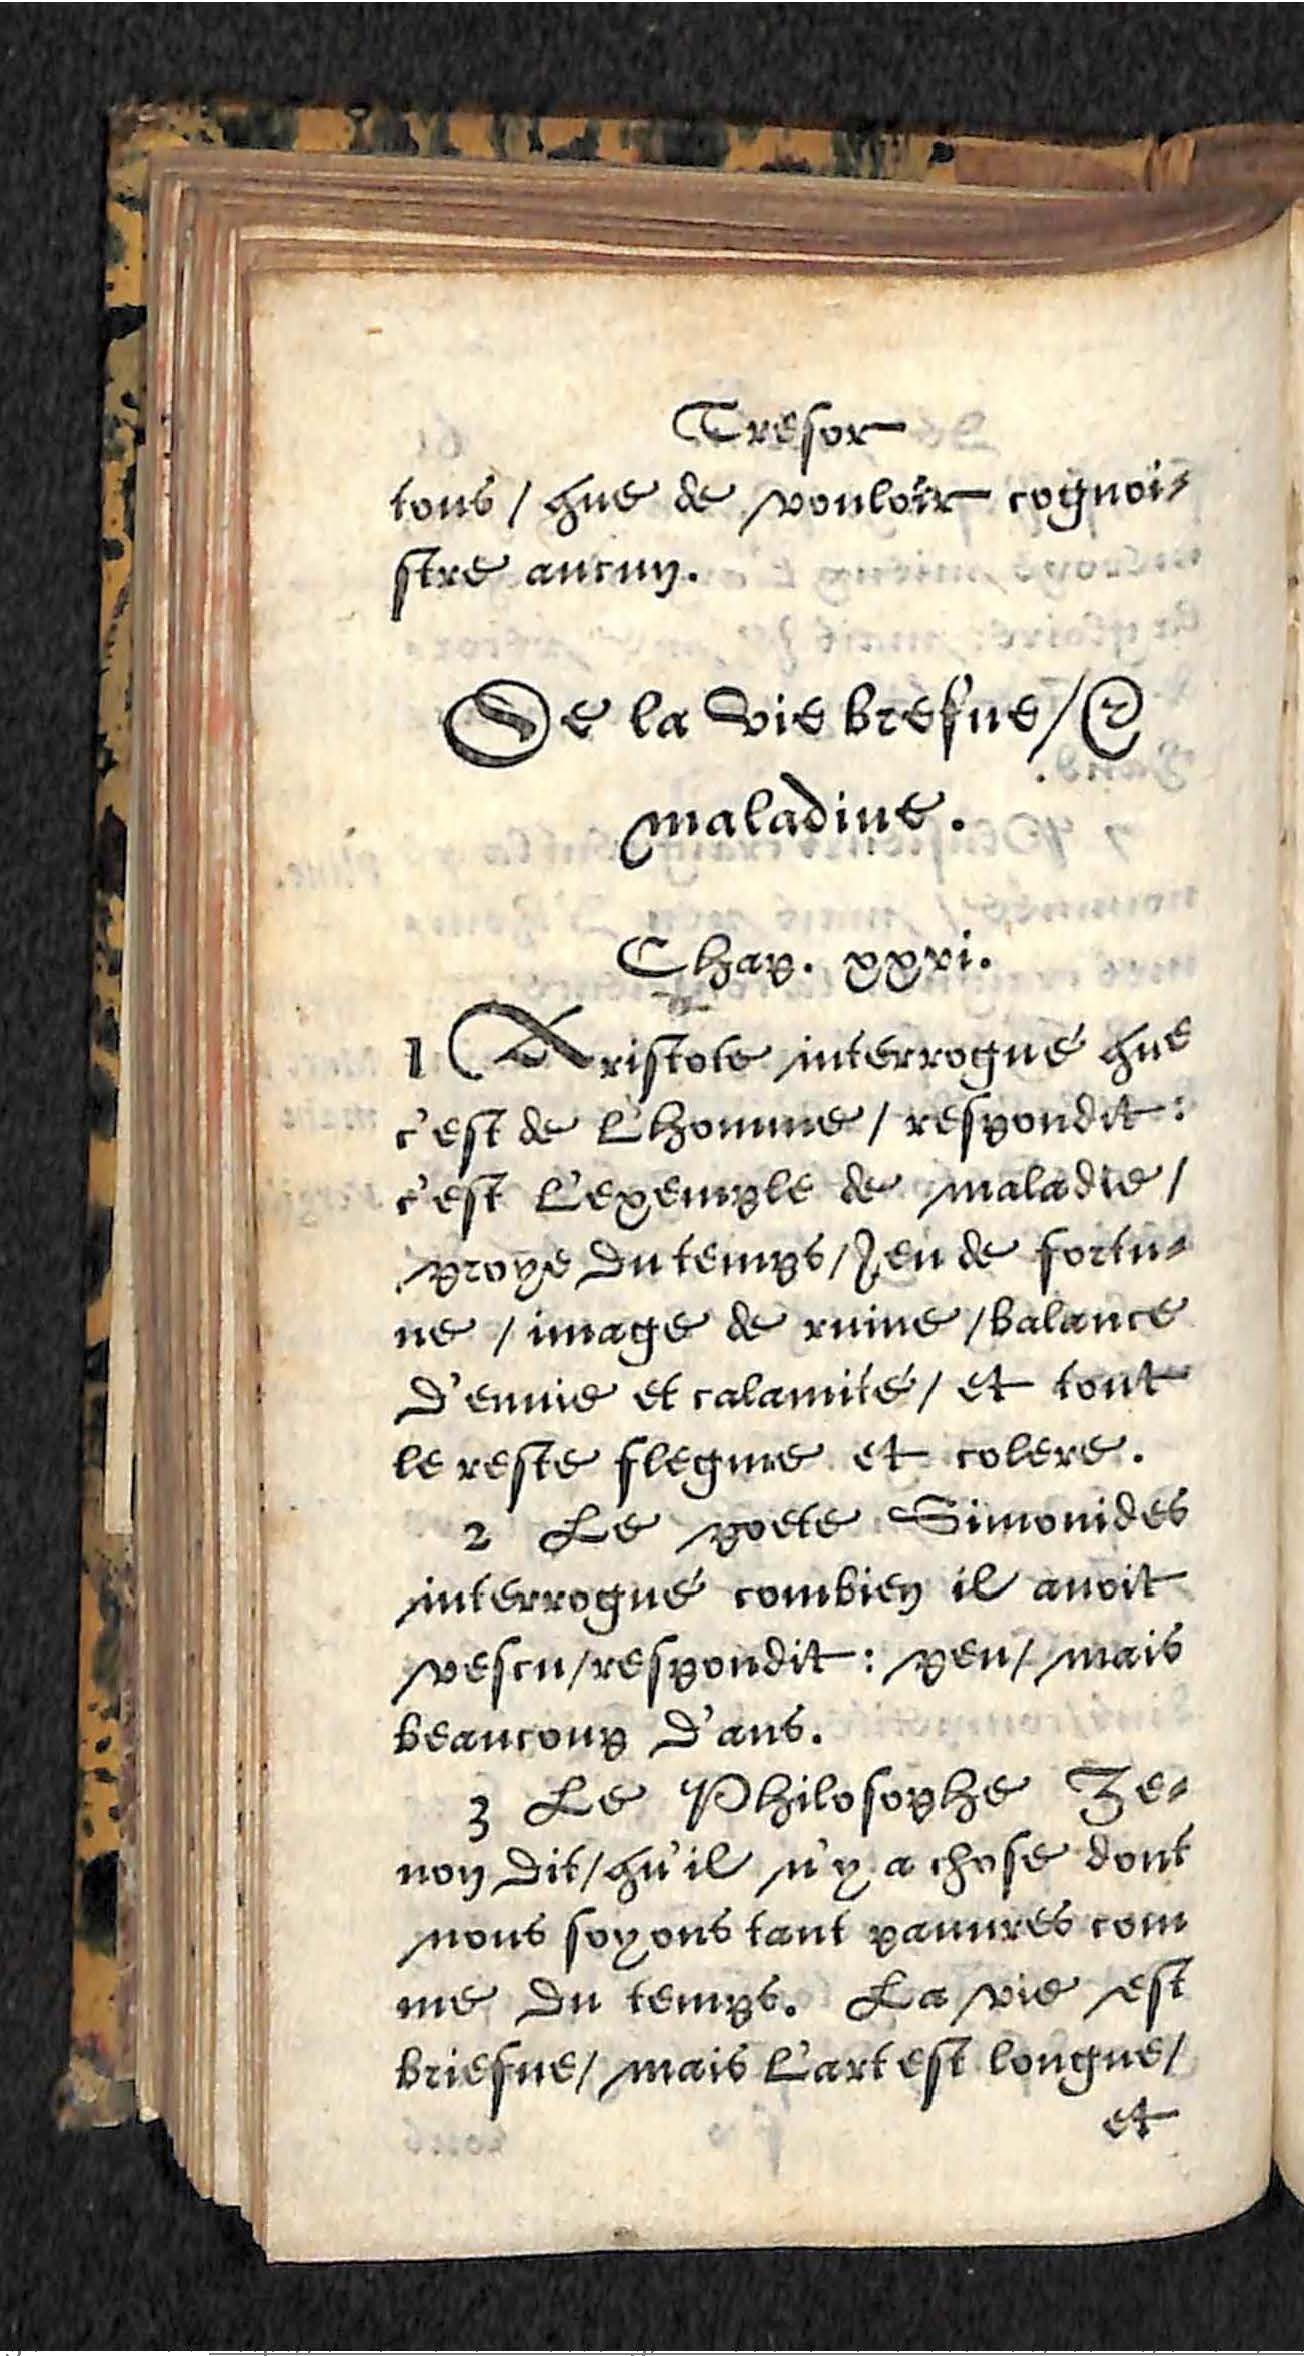 Tresor
tous / que de vouloir cognoi-
stre aucun.
De la vie brefue / &
maladiue.
Chap. xxvi.
1 Aristote interrogué que
c'est de l'homme / respondit :
c'est l'exemple de maladie /
proye du temps / Jeu de fortu-
ne / image de ruine / balance
d'enuie et calamité / et tout
le reste flegme et colere.
2 Le poete Simonides
interrogué combien il auoit
vescu / respondit : peu / mais
beaucoup d'ans.
3 Le Philosophe Ze-
non dit / qu'il n'y a chose dont
nous soyons tant pauures com
me du temps. La vie est
briefue / mais l'art est longue /
et